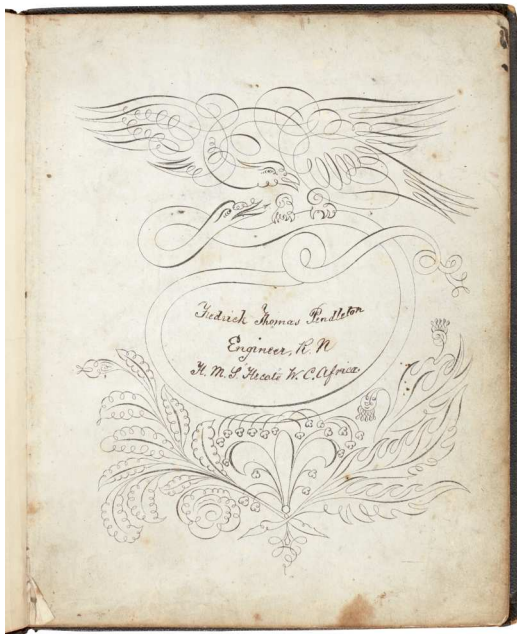 Fredrick Thomas Pendleton
Engineer, R. N
H. M. S. Hecate W. C. Africa